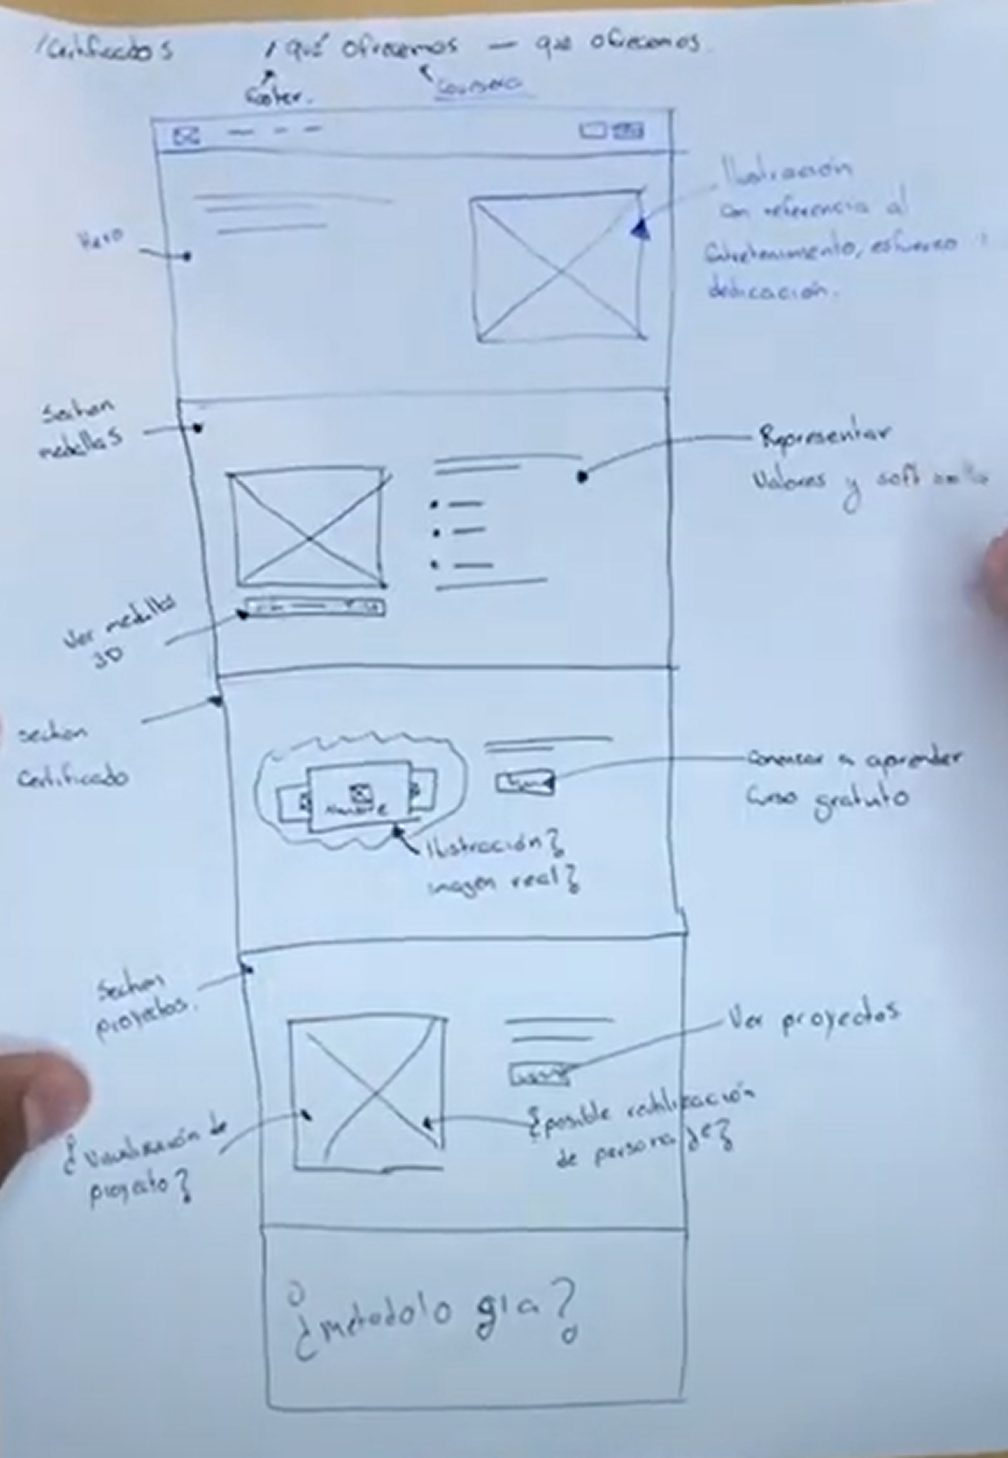 /Certificados / qué ofrecemos — que ofrecemos.
footer. Coursera
Hero
Ilustración
con referencia al
Entretenimiento, esfuerzo
dedicación.
Section
medallas
Representar
Valores y soft
Ver medallas
3D
section
Certificado
Nombre
Comenzar a aprender
Curso gratuito
Ilustración?
imagen real?
Section
proyectos.
Ver proyectos
¿Visualización de
proyecto?
¿posible reutilización
de personaje?
¿metodología?